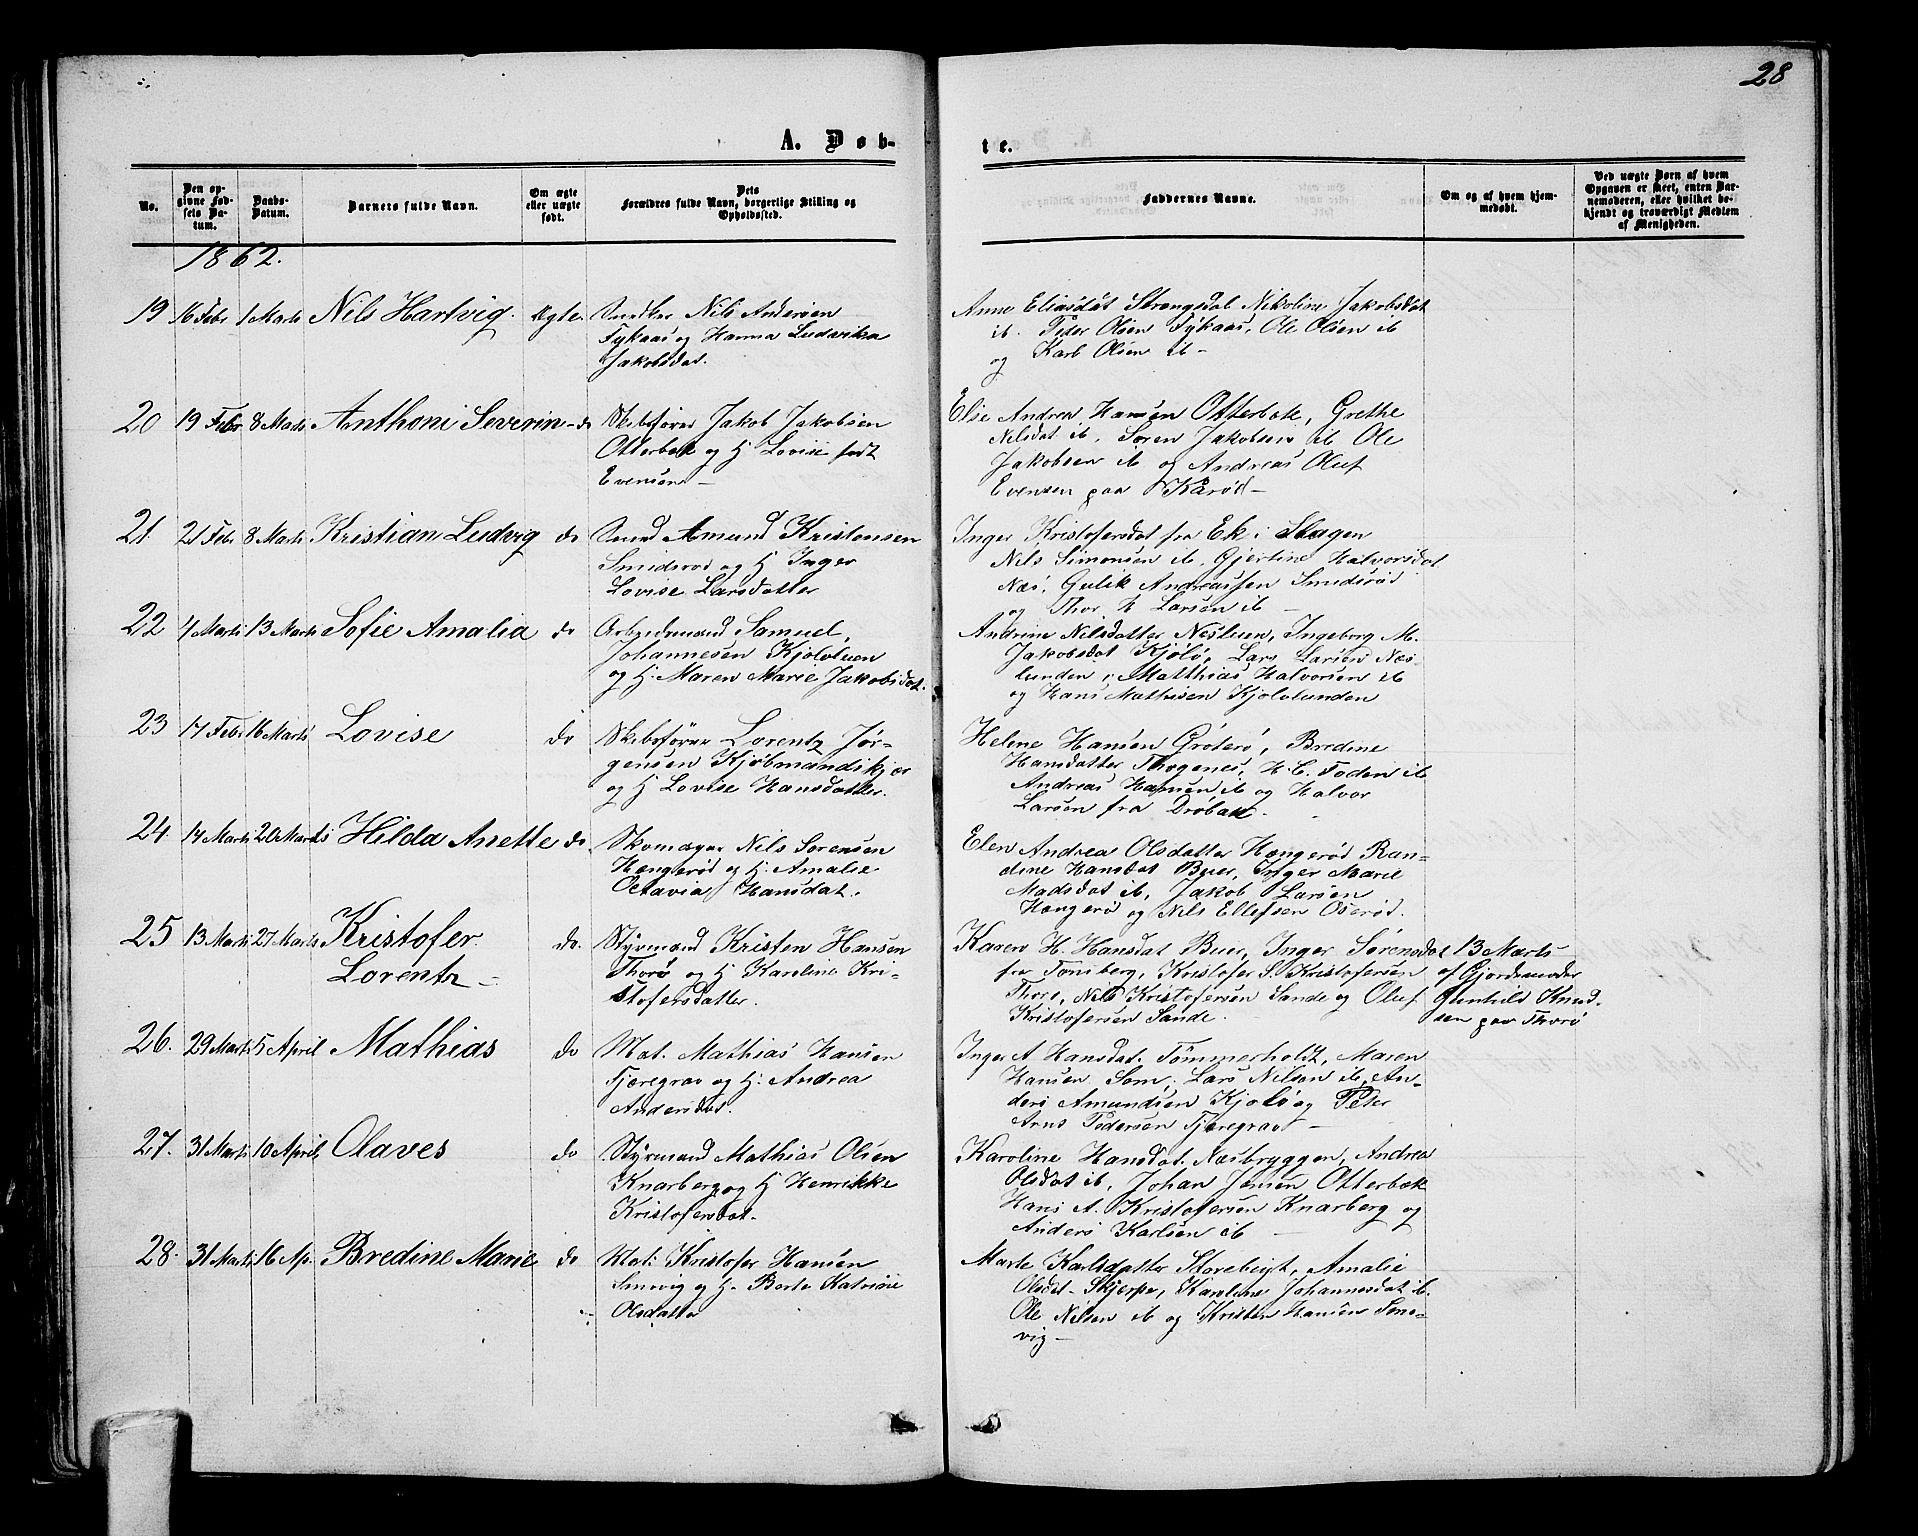 28
A. Døb-
te.
No.
Den op-
givne Fød-
sels Da-
tum.
Daabs-
Datum.
Barnets fulde Navn.
Om ægte
eller uægte
født.
Dets
Forældres fulde Navn, borgerlige Stilling og
Opholdssted.
Faddernes Navne.
Om og af hvem hjem-
medøbt.
Ved uægte Børn af hvem
Opgaven er skeet, enten Bar-
nemoderen, eller hvilket be-
kjendt og troværdigt Medlem
af Menigheden.
1862.
19 16 Febr 1 Marts Nils Hartvig. Ægte. Nils Andersen
Fykaas og Hanna Ludvika
Jakobsdat.
Anne Eliasdat Strengsdal Nikoline Jakobsdat
ib. Peder Olsen Fykaas, Ole Olsen ib
og Karl Olsen ib -
20 19 Febr 8 Marts Anthoni Severin - do Skibsfører Jakob Jakobsen
Otterbek og H. Lovise født
Evensen -
Else Andrea Hansen Otterbek, Grethe
Nilsdat ib, Søren Jakobsen ib Ole
Jakobsen ib og Andreas Oluf
Evensen paa Kårød -
21. 21 Febr 8 Marts Kristian Ludvig do Amund Kristensen
Smidsrød og H Inger
Lovise Larsdatter
Inger Kristofersdat fra Ek i Slagen
Nils Simonsen ib, Gjertine Halvorsdat
Næs, Gulik Andreassen Smidsrød
og Thor H Larsen ib -
22 4 Marts 13 Marts Sofie Amalia do Arbeidsmand Samuel
Johannesen Kjøloluen
og H. Maren Marie Jakobsdat.
Andrine Nilsdatter Nesluen, Ingeborg M.
Jakobsdat Kjølø, Lars Larsen Næs-
lunden, Matthias Halvorsen ib
og Hans Mathisen Kjølolunden
23 17 Febr 16 Marts Lovise do Skibsfører Lorentz Jør-
gensen Kjøbmandskjær
og H Lovise Hansdatter.
Helene Hansen Grøterø, Bredine
Hansdatter Thogenes, H. C. Foden ib
Andreas Hansen ib og Halvor
Larsen fra Drøbak.
24. 14 Marts 20 Marts Hilda Anette do. Skomager Nils Sørensen
Hængerød og H. Amalie
Octavia Hansdat.
Elen Andrea Olsdatter Hængerød Ran-
dine Hansdat Buer, Inger Marie
Madsdat ib, Jakob Larsen
Hængerø og Nils Ellefsen Oserød.
25 13 Marts 27 Marts Kristofer
Lorentz -
do. Styrmand Kristen Hansen
Thorø og H Karoline Kri-
stofersdatter.
Karen H. Hansdat Buer, Inger Sørensdat
fra Tønsberg, Kristofer S. Kristofersen
Thorø, Nils Kristofersen Sande og Oluf
Kristofersen Sande.
13 Marts
af Gjordemoder
Gunhild Knud-
sen paa Thorø
26. 29 Marts 5 April Mathias do Mat. Mathias Hansen
Fjæregrav og H. Andrea
Andersdat.
Inger A. Hansdat. Tømmerholt, Maren
Hansen Sem, Lars Nilsen ib, An-
ders Amundsen Kjøløog Peter
Arnt Pedersen Fjæregrav -
27. 31 Marts 10 April Olaves do Styrmand Mathias Olsen
Knarberg og H Henrikke
Kristofersdat.
Karoline Hansdat. Næsbryggen, Andrea
Olsdat ib, Johan Jensen Otterbek
Hans A. Kristofersen Knarberg og
Anders Karlsen ib -
28. 31 Marts 16 Ap. Bredine Marie do Mat. Kristofer Hansen
Sanvig og H. Berte Katrine
Olsdatter
Marte Karlsdatter Storebigt, Amalie
Olsdat Skjerpe, Karoline Johannesdat ib.
Ole Nilsen ib og Kristen Hansen Sone-
vig -